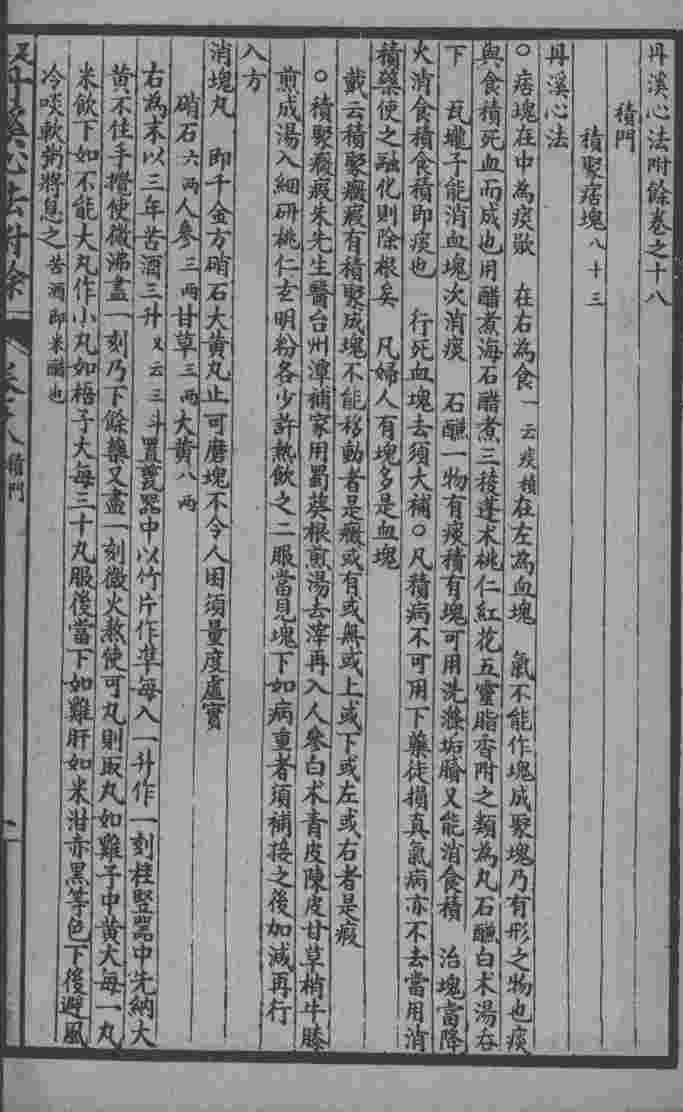 丹溪心法附餘卷之十八
積門
積聚痞塊八十三
丹溪心法
○痞塊在中為痰飲　在右為食一云痰積在左為血塊　氣不能作塊成聚塊乃有形之物也痰
與食積死血而成也用醋煮海石醋煮三稜蓬朮桃仁紅花五靈脂香附之類為丸石醶白朮湯吞
下　瓦壠子能消血塊次消痰　石醶一物有痰積有塊可用洗滌垢膩又能消食積　治塊當降
火消食積食積即痰也　行死血塊去須大補○凡積病不可用下藥徒損真氣病亦不去當用消
積藥使之融化則除根矣　凡婦人有塊多是血塊
戴云積聚癥瘕有積聚成塊不能移動者是癥或有或無或上或下或左或右者是瘕
○積聚癥瘕朱先生醫台州潭補家用蜀葵根煎湯去滓再入人參白朮青皮陳皮甘草梢牛膝
煎成湯入細研桃仁玄明粉各少許熱飲之二服當見塊下如病重者須補接之後加減再行
入方
消塊丸　即千金方硝石大黃丸止可磨塊不令人困須量度虛實
硝石六兩人參三兩甘草三兩大黃八兩
右為末以三年苦酒三升又云三斗置甆器中以竹片作準每入一升作一刻柱豎器中先納大
黃不住手攪使微沸盡一刻乃下餘藥又盡一刻微火熬使可丸則取丸如雞子中黃大每一丸
米飲下如不能大丸作小丸如梧子大每三十丸服後當下如雞肝如米泔赤黑等色下後避風
冷啖軟粥將息之苦酒即米醋也
丹溪心法附餘　卷之十八積門　一